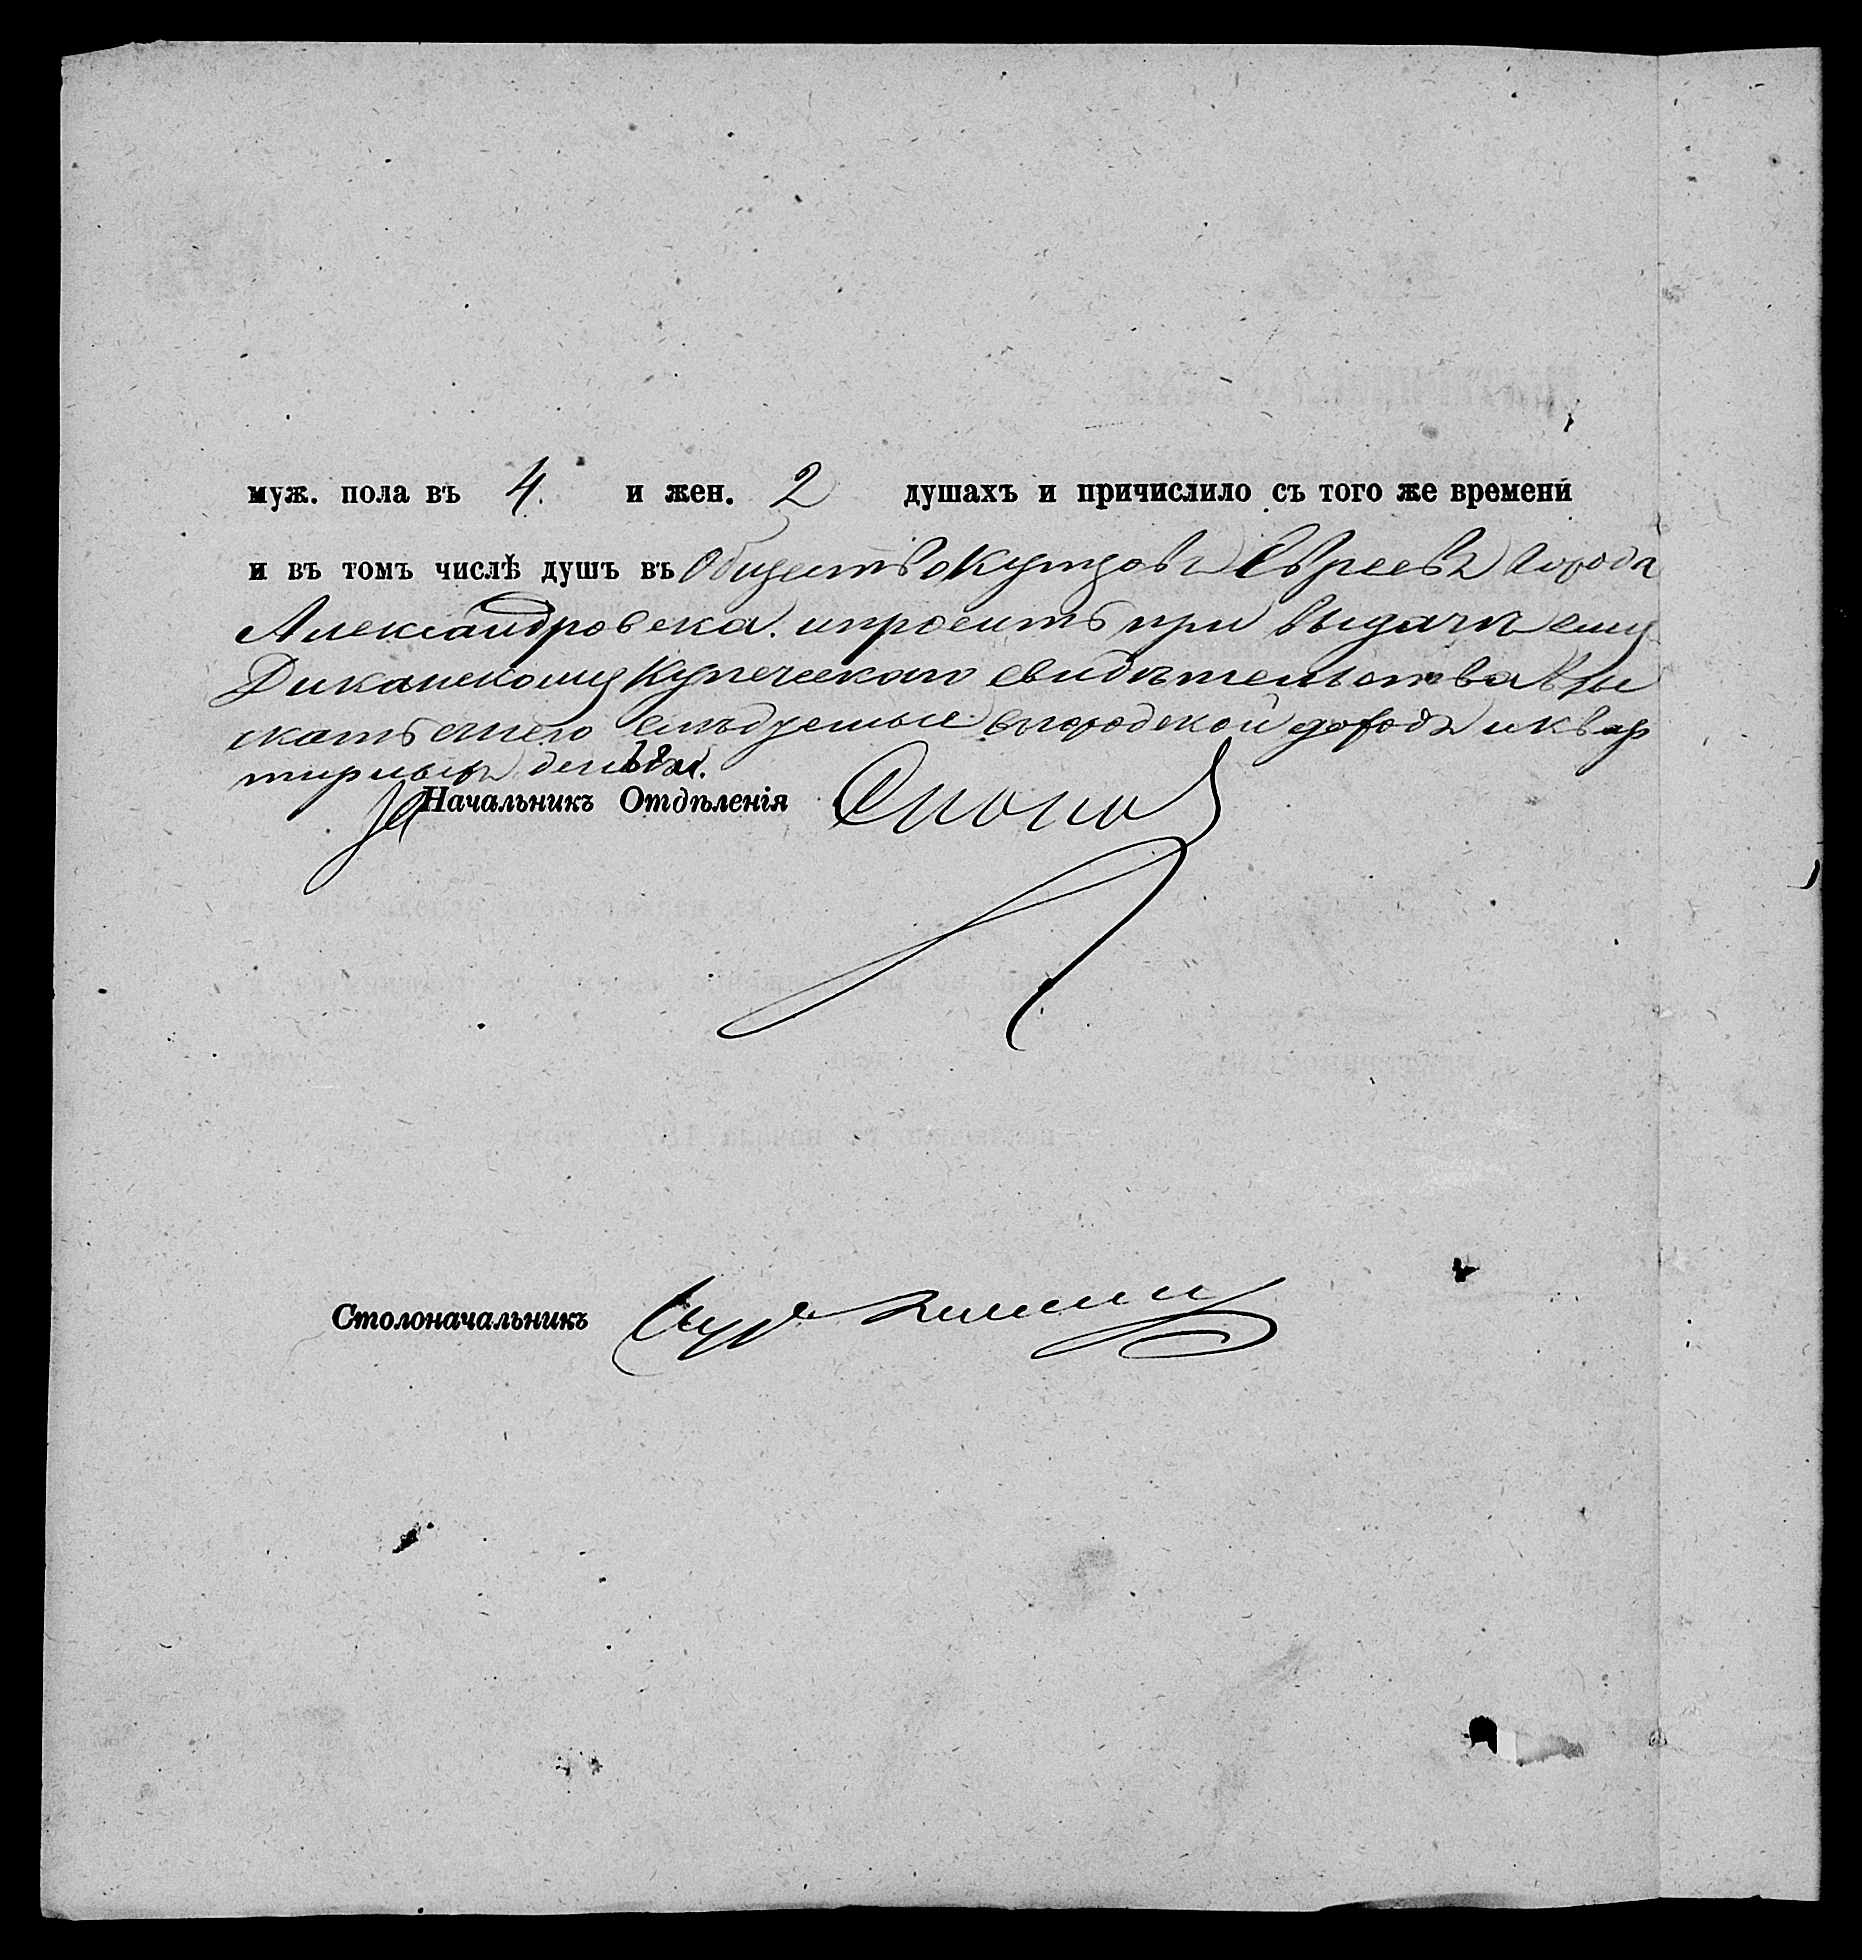 муж. пола въ 4. и жен. 2 душахъ и причислило съ того же времени
и въ томъ числѣ душъ въ Общество Купцовъ Евреевъ города
Александровска. и проситъ при выдачѣ ему
Диканскому Купеческаго свидѣтельства взы
скать с него слѣдуемые в городской доходъ и квар
тирныхъ деньги.
За Начальникъ Отдѣленія
Столоначальникъ